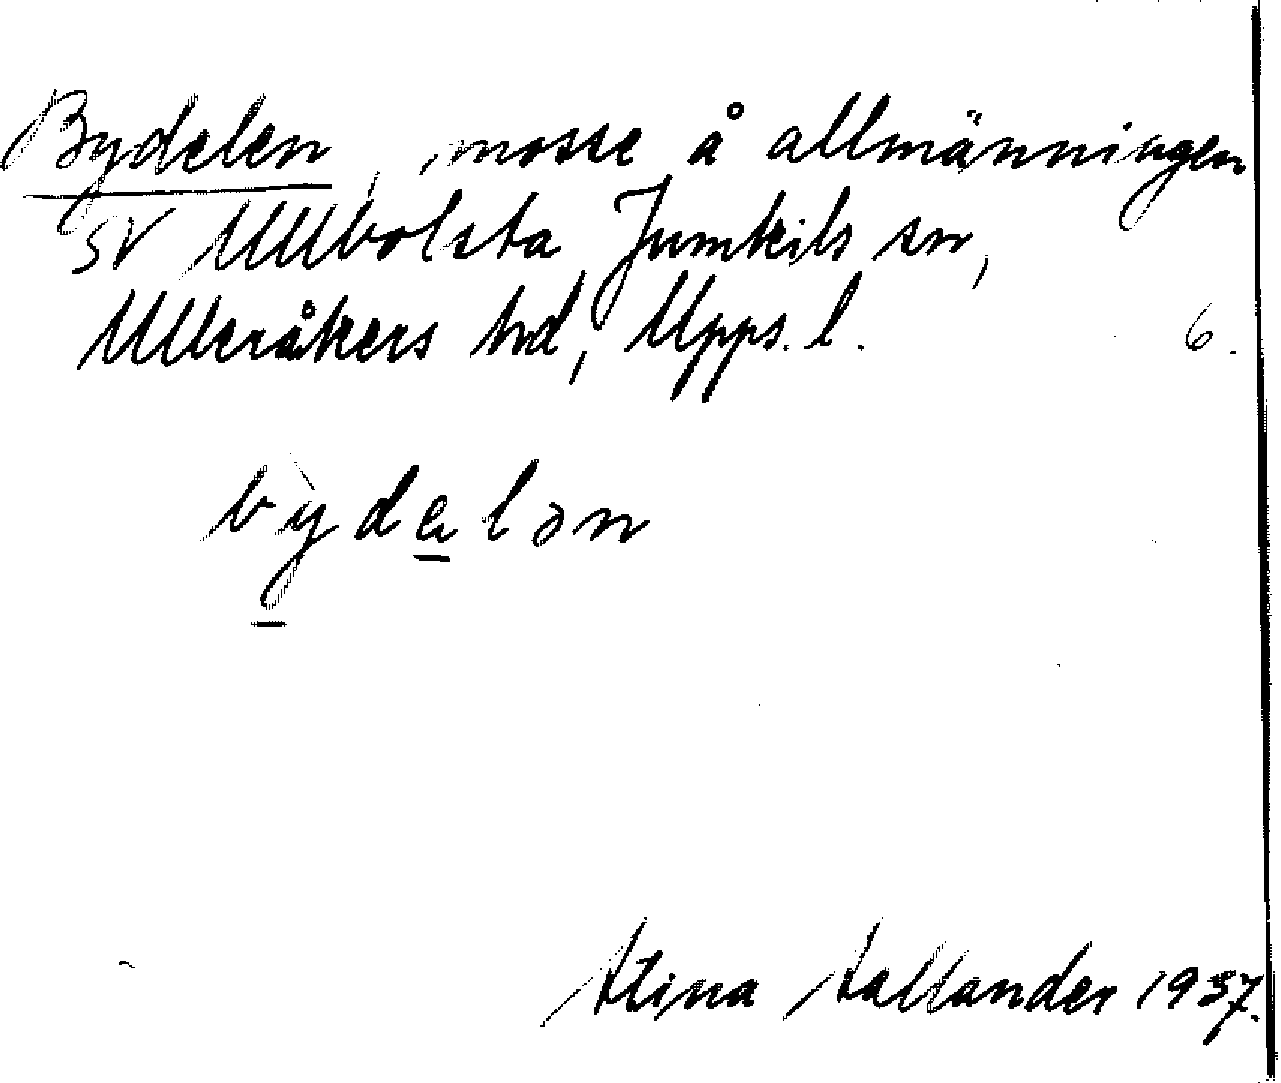 Bydelen, mosse å allmänningen
SV Ullbolsta, Jumkils sn,
Ulleråkers hd, Upps. l. 6.
bỳdelən
Stina Hallander 1937.